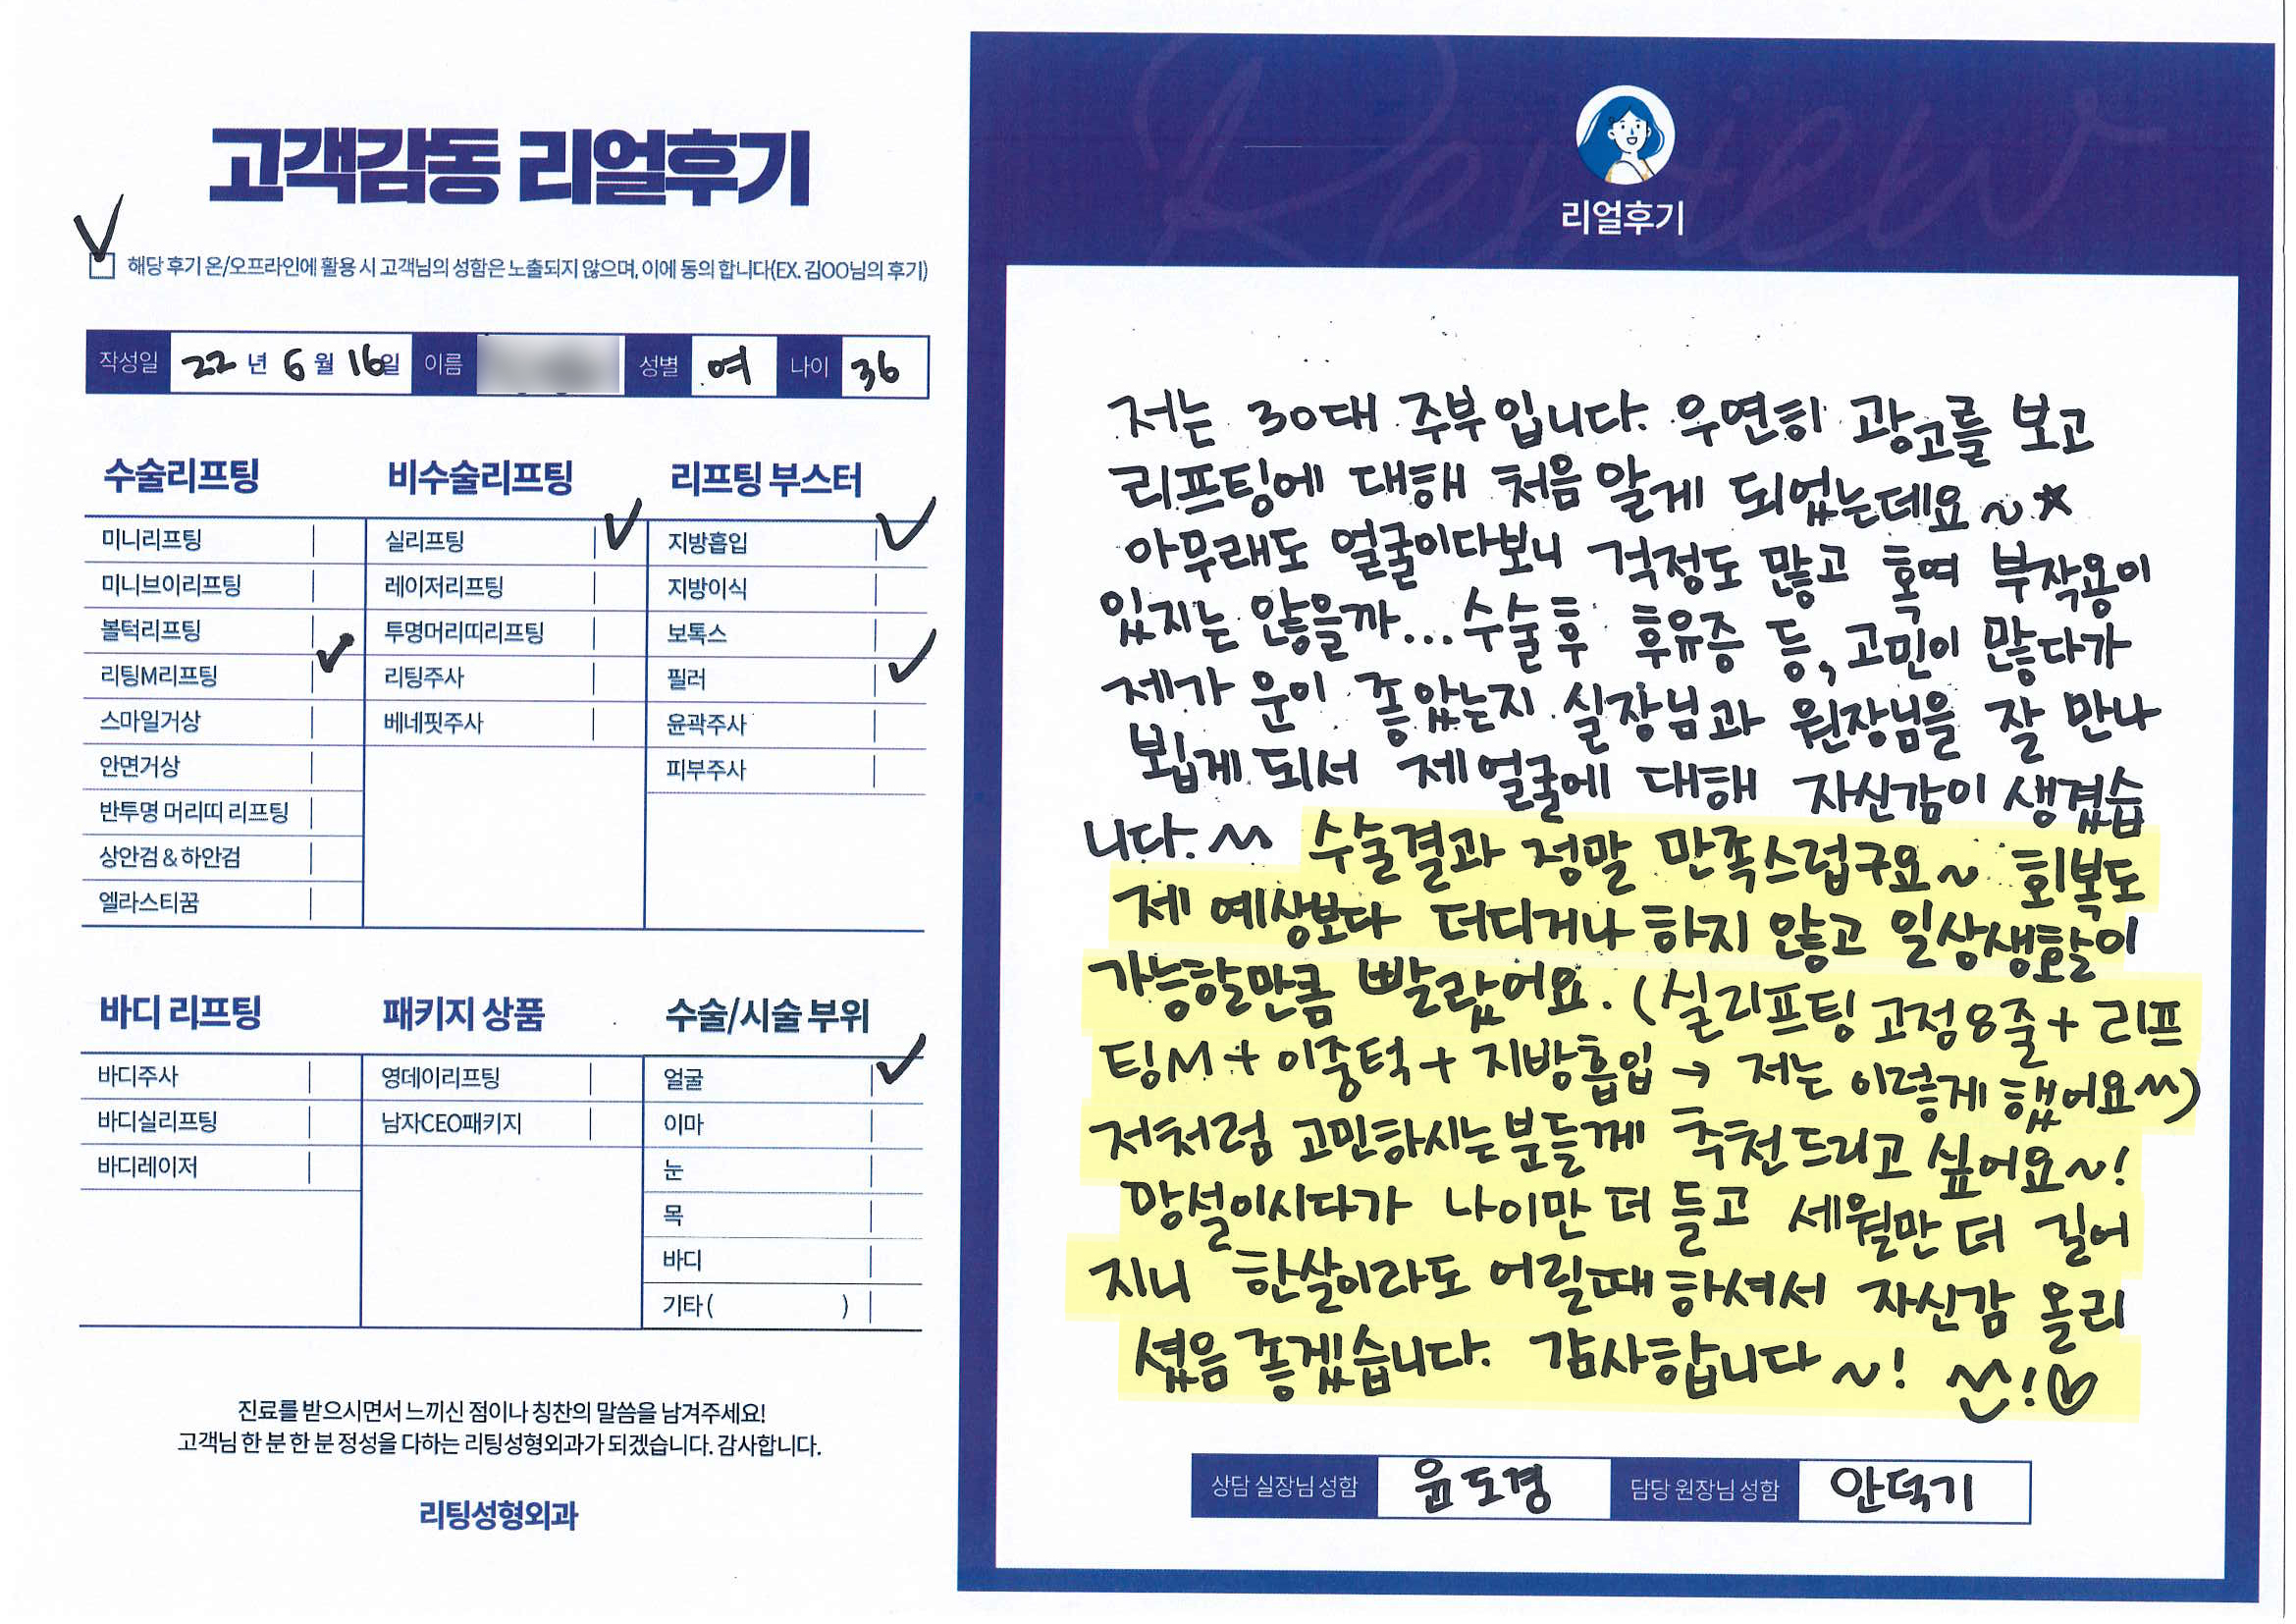 고객감동 리얼후기
해당 후기 온/오프라인에 활용 시 고객님의 성함은 노출되지 않으며, 이에 동의 합니다(EX. 김OO님의 후기)
작성일 22 년 6 월 16일 이름 성별 여 나이 36
수술리프팅
미니리프팅
미니브이리프팅
볼턱리프팅
리팅M리프팅
스마일거상
안면거상
반투명 머리띠 리프팅
상안검 & 하안검
엘라스티꿈
비수술리프팅
실리프팅
레이저리프팅
투명머리띠리프팅
리팅주사
베네핏주사
리프팅 부스터
지방흡입
지방이식
보톡스
필러
윤곽주사
피부주사
바디 리프팅
바디주사
바디실리프팅
바디레이저
패키지 상품
영데이리프팅
남자CEO패키지
수술/시술 부위
얼굴
이마
눈
목
바디
기타 ( )
진료를 받으시면서 느끼신 점이나 칭찬의 말씀을 남겨주세요!
고객님 한 분 한 분 정성을 다하는 리팅성형외과가 되겠습니다. 감사합니다.
리팅성형외과
Review
리얼후기
저는 30대 주부입니다. 우연히 광고를 보고
리프팅에 대해 처음 알게 되었는데요~★
아무래도 얼굴이다보니 걱정도 많고 혹여 부작용이
있지는 않을까... 수술후 후유증 등, 고민이 많다가
제가 운이 좋았는지 실장님과 원장님을 잘 만나
뵙게 되서 제 얼굴에 대해 자신감이 생겼습
니다. ^^ 수술결과 정말 만족스럽구요~ 회복도
제 예상보다 더디거나 하지 않고 일상생활이
가능할만큼 빨랐어요. (실리프팅 고정 8줄 + 리프
팅M + 이중턱 + 지방흡입 → 저는 이렇게 했어요^^)
저처럼 고민하시는분들께 추천드리고 싶어요~!
망설이시다가 나이만 더 들고 세월만 더 길어
지니 한살이라도 어릴때 하셔서 자신감 올리
셨음 좋겠습니다. 감사합니다~! ^^!♡
상담 실장님 성함 윤도경 담당 원장님 성함 안덕기